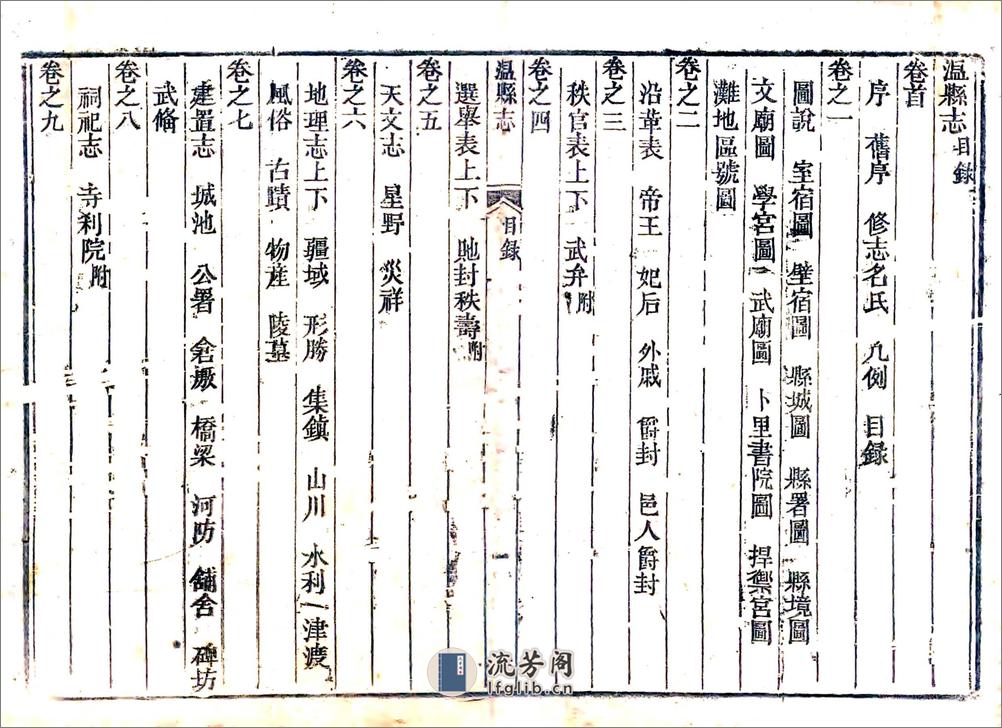 溫縣志目録
卷首
序　舊序　修志名氏　凡例　目録
卷之一
圖說　室宿圖　壁宿圖　縣城圖　縣署圖　縣境圖
文廟圖　學宮圖　武廟圖　卜里書院圖　捍禦宮圖
灘地區號圖
卷之二
沿革表　帝王　妃后　外戚　爵封　邑人爵封
卷之三
秩官表上下　武弁附
卷之四
選舉表上下　貤封秩壽附
溫縣志　目録　一
卷之五
天文志　星野　災祥
卷之六
地理志上下　疆域　形勝　集鎮　山川　水利　津渡
風俗　古蹟　物産　陵墓
卷之七
建置志　城池　公署　倉厫　橋梁　河防　舖舍　碑坊
武俻
卷之八
祠祀志　寺刹院附
卷之九
流芳阁
lfglib.cn